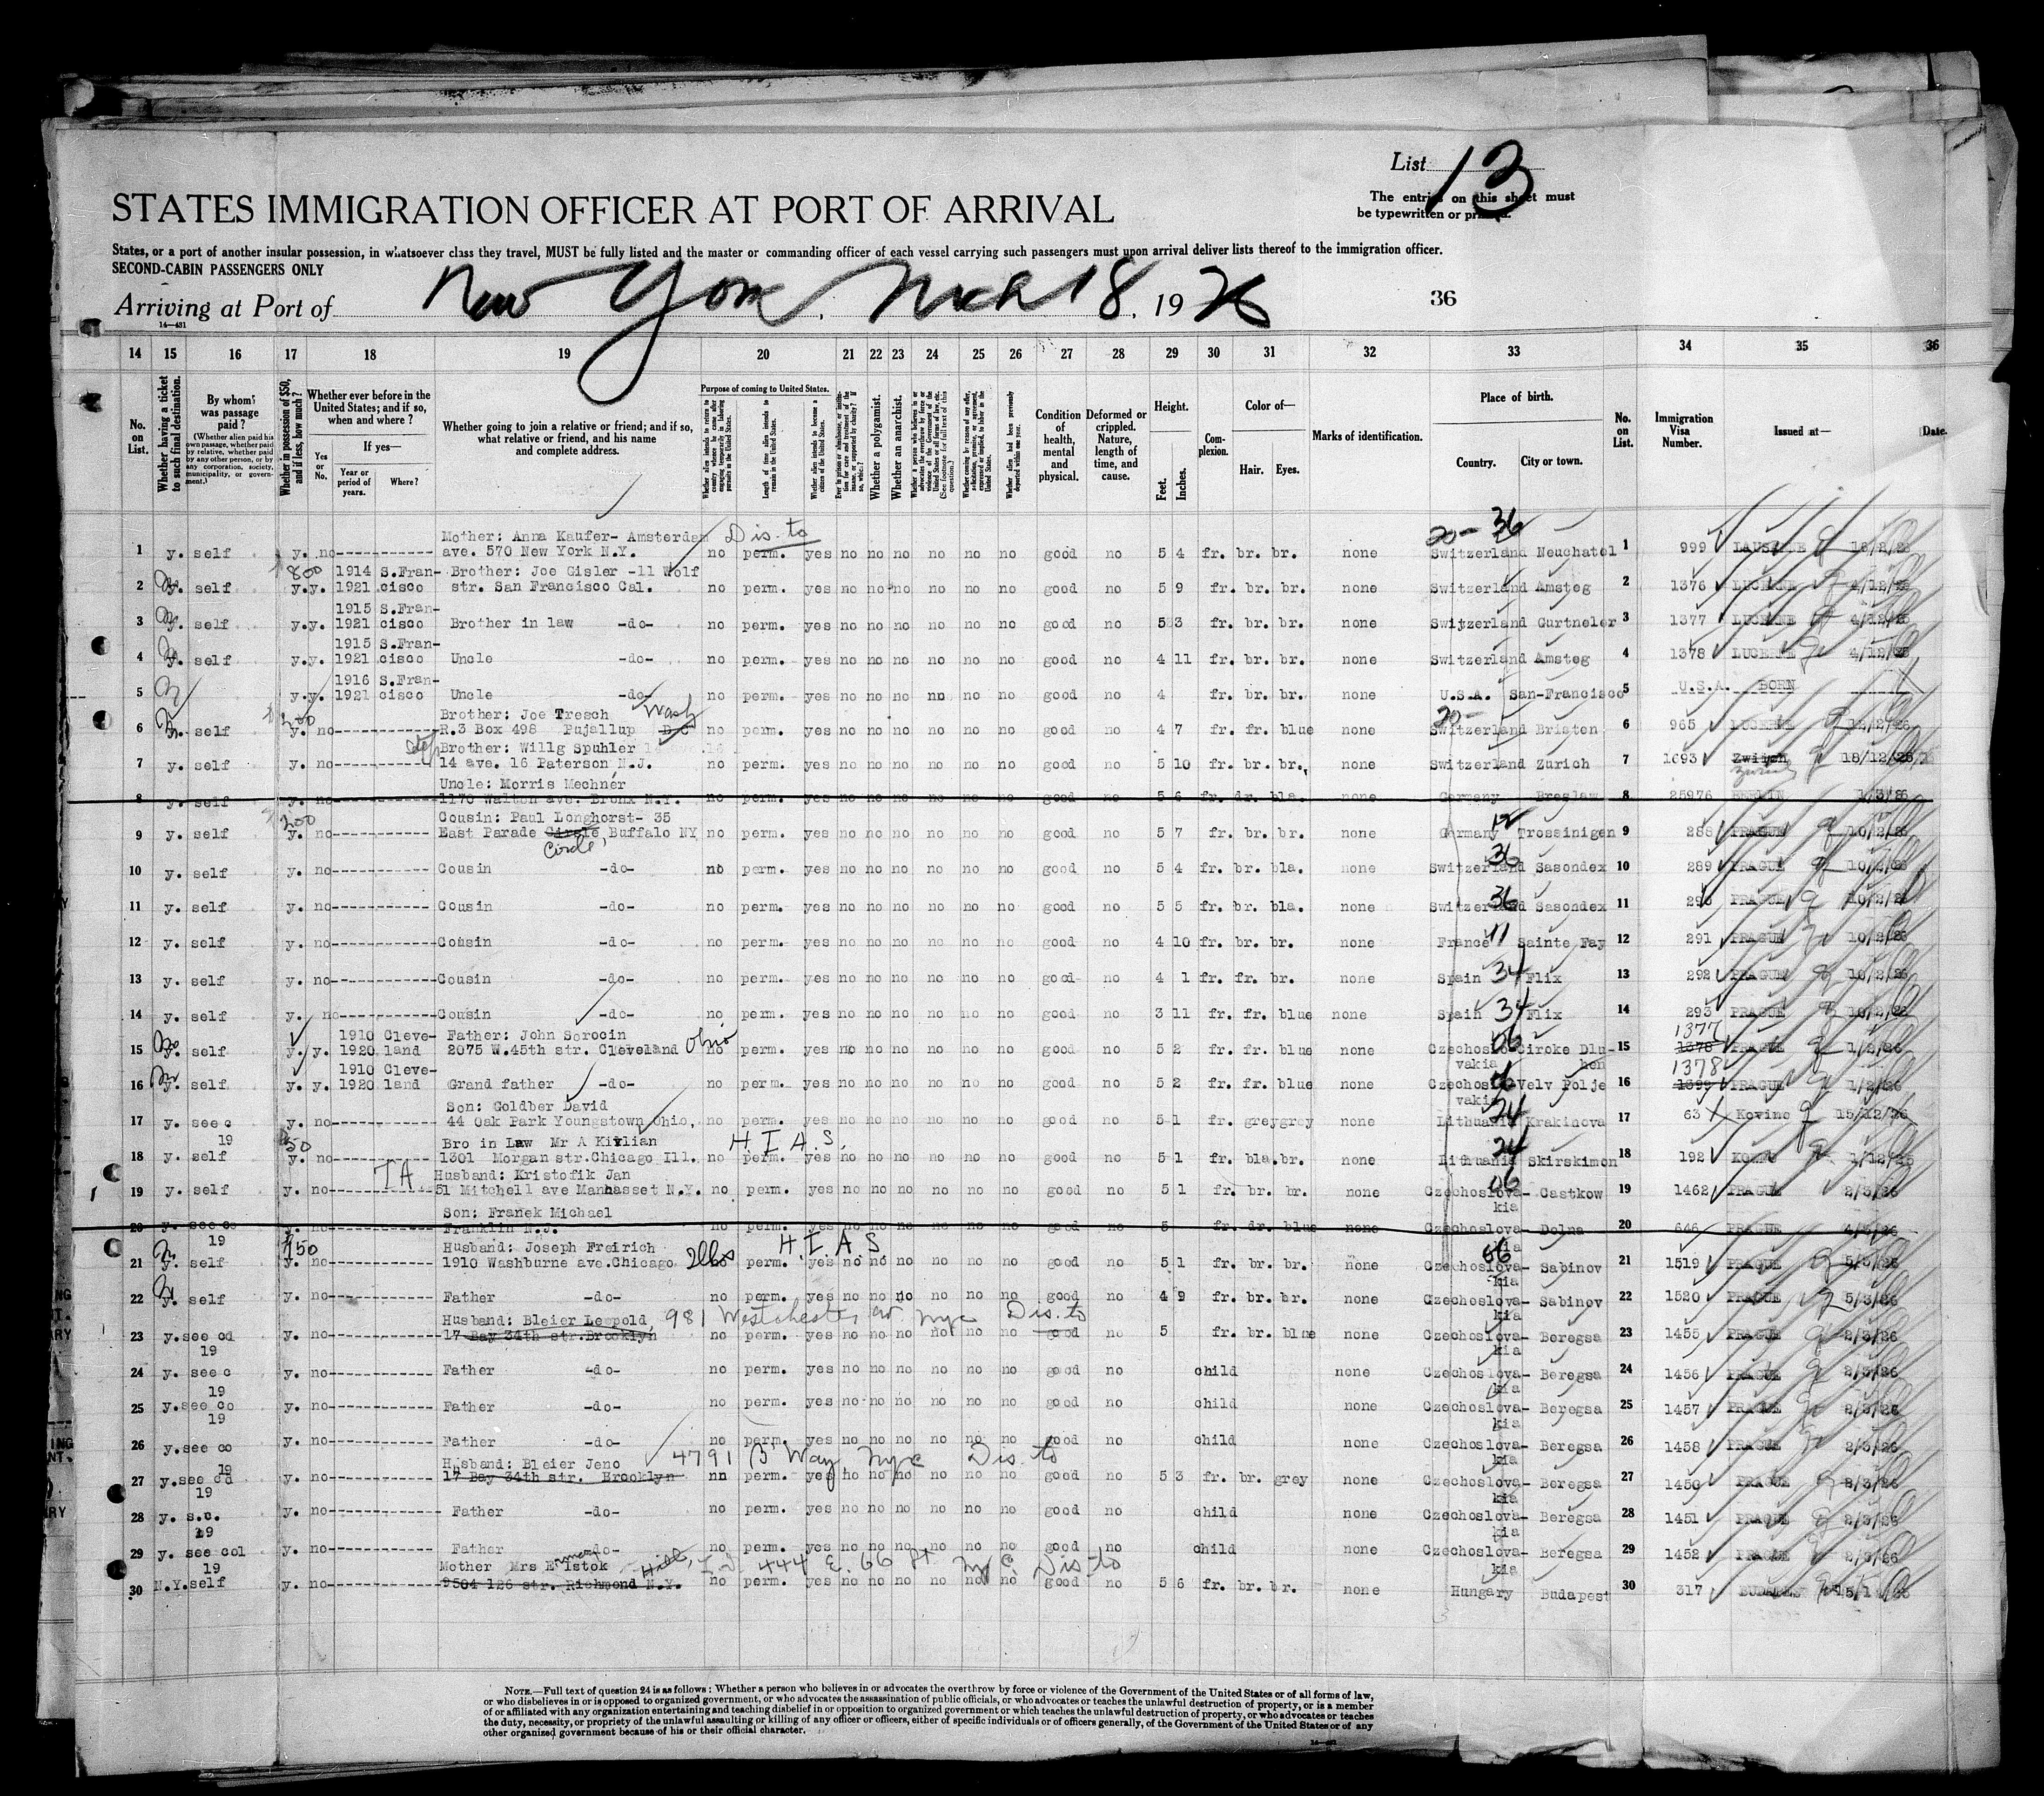 List 13
The entries on this sheet must
be typewritten or printed.
STATES IMMIGRATION OFFICER AT PORT OF ARRIVAL
States, or a port of another insular possession, in whatsoever class they travel, MUST be fully listed and the master or commanding officer of each vessel carrying such passengers must upon arrival deliver lists thereof to the immigration officer.
SECOND-CABIN PASSENGERS ONLY
Arriving at Port of New York, Mch 18, 1926
36
14—431
14 15 16 17 18 19 20 21 22 23 24 25 26 27 28 29 30 31 32 33 34 35 36
No. on List.
Whether having a ticket to such final destination.
By whom was passage paid?
(Whether alien paid his own passage, whether paid by relative, whether paid by any other person, or by any corporation, society, municipality, or government.)
Whether in possession of $50, and if less, how much?
Whether ever before in the United States; and if so, when and where?
Yes or No.
If yes—
Year or period of years.
Where?
Whether going to join a relative or friend; and if so, what relative or friend, and his name and complete address.
Purpose of coming to United States.
Length of time alien intends to remain in the United States.
Whether alien intends to become a citizen of the United States.
Whether a polygamist.
Whether an anarchist.
Condition of health, mental and physical.
Deformed or crippled. Nature, length of time, and cause.
Height.
Feet. Inches.
Complexion.
Color of—
Hair. Eyes.
Marks of identification.
Place of birth.
Country. City or town.
No. on List.
Immigration Visa Number.
Issued at—
Date.
Mother: Anna Kaufer- Amsterdam Dis. to 20- 36
1 y. self y. no ave. 570 New York N.Y. no perm. yes no no no no no no good no 5 4 fr. br. br. none Switzerland Neuchatel 1 999
800 1914 S.Fran- Brother: Joe Gisler -11 Wolf
2 y. self y.y. 1921 cisco str. San Francisco Cal. no perm. yes no no no no no no good no 5 9 fr. br. br. none Switzerland Amsteg 2 1376 LUCERNE 4/12/25
1915 S.Fran-
3 y. self y.y. 1921 cisco Brother in law -do- no perm. yes no no no no no no good no 5 3 fr. br. br. none Switzerland Gurtneler 3 1377 LUCERNE 4/12/25
1915 S.Fran-
4 y. self y.y. 1921 cisco Uncle -do- no perm. yes no no no no no no good no 4 11 fr. br. br. none Switzerland Amsteg 4 1378 LUCERNE 4/12/25
1916 S.Fran-
5 y.y. 1921 cisco Uncle -do- no perm. yes no no no no no no good no 4 fr. br. br. none U.S.A. San-Francisco 5 U.S.A. BORN
200 Brother: Joe Tresch Wash 20-
6 y. self y. no R.3 Box 498 Pujallup D C no perm. yes no no no no no no good no 4 7 fr. fr. blue none Switzerland Bristen 6 965 LUCERNE 12/2/26
Step Brother: Willg Spuhler
7 y. self y. no 14 ave. 16 Paterson N.J. no perm. yes no no no no no no good no 5 10 fr. br. br. none Switzerland Zurich 7 1693 Zwitch 18/12/25
Zurich
Uncle: Morris Mechner
8 y. self y. no 1170 Walton ave. Bronx N.Y. no perm. yes no no no no no no good no 5 6 fr. dr. bla. none Germany Breslaw 8 25976 BERLIN 1/3/26
200 Cousin: Paul Longhorst- 35 12
9 y. self y. no East Parade Circle Buffalo NY no perm. yes no no no no no no good no 5 7 fr. br. br. none Germany Trossinigen 9 288 PRAGUE 10/2/26
Circle 36
10 y. self y. no Cousin -do- no perm. yes no no no no no no good no 5 4 fr. br. bla. none Switzerland Sasondex 10 289 PRAGUE 10/2/26
36
11 y. self y. no Cousin -do- no perm. yes no no no no no no good no 5 5 fr. br. bla. none Switzerland Sasondex 11 290 PRAGUE 10/2/26
12 y. self y. no Cousin -do- no perm. yes no no no no no no good no 4 10 fr. br. br. none France 11 Sainte Fay 12 291 PRAGUE 10/2/26
13 y. self y. no Cousin -do- no perm. yes no no no no no no good no 4 1 fr. fr. br. none Spain 34 Flix 13 292 PRAGUE 10/2/26
14 y. self y. no Cousin -do- no perm. yes no no no no no no good no 3 11 fr. fr. blue none Spain 34 Flix 14 293 PRAGUE 10/2/26
1910 Cleve- Father: John Sorocin Ohio 06 1377
15 y. self y. y. 1920 land 2075 W.45th str. Cleveland no perm. yes no no no no no no good no 5 2 fr. fr. blue none Czechoslo- Ciroke Dlu- 15 1378 PRAGUE 1/2/26
1910 Cleve- vakia hen 1378
16 y. self y. y. 1920 land Grand father -do- no perm. yes no no no no no no good no 5 2 fr. fr. blue none Czechoslo- Velv Polje 16 1399 PRAGUE 1/2/26
Son: Goldber David vakia 24
17 y. see c y. no 44 Oak Park Youngstown Ohio, no perm. yes no no no no no no good no 5 1 fr. grey grey none Lithuania Krakinova 17 63 Kovino 15/12/25
19 50 Bro in Law Mr A Kivlian H.I.A.S. 24
18 y. self y. no 1301 Morgan str. Chicago Ill. no perm. yes no no no no no no good no 5 1 fr. bla. br. none Lithuania Skirskimon 18 192 1/12/25
TA Husband: Kristofik Jan 06
19 y. self y. no 51 Mitchell ave Manhasset N.Y. no perm. yes no no no no no no good no 5 1 fr. br. br. none Czechoslova- Castkow 19 1462 PRAGUE 2/3/26
Son: Franek Michael kia
20 y. see co y. no Franklin N.J. no perm. yes no no no no no no good no 5 fr. dr. blue none Czechoslova- Dolna 20 646 PRAGUE
19 150 Husband: Joseph Freirich H.I.A.S. kia 06
21 y. self y. no 1910 Washburne ave. Chicago Ills no perm. yes no no no no no no good no 5 1 fr. br. br. none Czechoslova- Sabinov 21 1519 PRAGUE 5/3/26
kia
22 y. self y. no Father -do- no perm. yes no no no no no no good no 4 9 fr. br. br. none Czechoslova- Sabinov 22 1520 PRAGUE 5/3/26
Husband: Bleier Leopold, 981 Westchester av NYC Dis. to kia
23 y. see co y. no 17 Bay 34th str. Brooklyn no perm. yes no no no no no no good no 5 fr. br. blue none Czechoslova- Beregsa 23 1455 PRAGUE 2/3/26
19 kia
24 y. see c y. no Father -do- no perm. yes no no no no no no good no child none Czechoslova- Beregsa 24 1456 PRAGUE 2/3/26
19 kia
25 y. see co y. no Father -do- no perm. yes no no no no no no good no child none Czechoslova- Beregsa 25 1457 PRAGUE 2/3/26
19 kia
26 y. see co y. no Father -do- no perm. yes no no no no no no good no child none Czechoslova- Beregsa 26 1458 PRAGUE 2/3/26
19 Husband: Bleier Jeno 4791 B'Way, NYC Dis. to kia
27 y. see cd y. no 17 Bay 34th str. Brooklyn nn perm. yes no no no no no no good no 5 3 fr. br. grey none Czechoslova- Beregsa 27 1450 PRAGUE 2/3/26
19 kia
28 y. s.c. y. no Father -do- no perm. yes no no no no no no good no child none Czechoslova- Beregsa 28 1451 PRAGUE 2/3/26
19 kia
29 y. see col y. no Father -do- no perm. yes no no no no no no good no child none Czechoslova- Beregsa 29 1452 PRAGUE 2/3/26
19 Mother Mrs E Istok Hill, L.I. 444 E. 66 St NYC Dis-to kia
30 N.Y. self y. no 9504 126 str. Richmond N.Y. no perm. yes no no no no no no good no 5 6 fr. br. br. none Hungary Budapest 30 317
NOTE.—Full text of question 24 is as follows: Whether a person who believes in or advocates the overthrow by force or violence of the Government of the United States or of all forms of law,
or who disbelieves in or is opposed to organized government, or who advocates the assassination of public officials, or who advocates or teaches the unlawful destruction of property, or is a member
of or affiliated with any organization entertaining and teaching disbelief in or opposition to organized government or which teaches the unlawful destruction of property, or who advocates or teaches
the duty, necessity, or propriety of the unlawful assaulting or killing of any officer or officers, either of specific individuals or of officers generally, of the Government of the United States or of any
other organized government because of his or their official character.
14—431